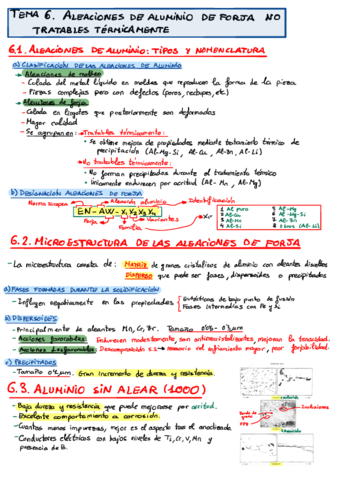 TEMA 6. ALEACIONES DE ALUMINIO DE FORJA NO
TRATABLES TÉRMICAMENTE
6.1. ALEACIONES DE ALUMINIO: TIPOS Y NOMENCLATURA
a) CLASIFICACIÓN DE LAS ALEACIONES DE ALUMINIO
- Aleaciones de moldeo
- Colada del metal líquido en moldes que reproducen la forma de la pieza
- Piezas complejas pero con defectos (poros, rechupes, etc.)
- Aleaciones de forja
- Colada en lingotes que posteriormente son deformados
- Mayor calidad
- Se agrupan en:
Tratables térmicamente:
• Se obtiene mejora de propiedades mediante tratamiento térmico de
precipitación (Al-Mg-Si, Al-Cu, Al-Zn, Al-Li)
No tratables térmicamente:
• No forman precipitados durante el tratamiento térmico
• Únicamente endurecen por acritud (Al-Mn, Al-Mg)
b) DESIGNACIÓN ALEACIONES DE FORJA
Norma Europea
Aleación aluminio
Identificación
EN - AW - X1 X2 X3 X4
Forja
Familia
Variantes
1 Al puro
2 Al-Cu
3 Al-Mn
4 Al-Si
5 Al-Mg
6 Al-Mg-Si
7 Al-Zn
8 Otros (Al-Li)
6.2. MICROESTRUCTURA DE LAS ALEACIONES DE FORJA
- La microestructura consta de:
Matriz de granos cristalinos de aluminio con aleantes disueltos
Disperso que puede ser fases, dispersoides o precipitados
a) FASES FORMADAS DURANTE LA SOLIDIFICACIÓN
- Influyen negativamente en las propiedades
Eutécticos de bajo punto de fusión
Fases intermedias con Fe y Si
b) DISPERSOIDES
- Principalmente de aleantes Mn, Cr, Zr. Tamaño 0'05 - 0'5 μm
- Acciones favorables: Endurecen modestamente, son antirrecristalizantes, mejoran la tenacidad.
- Acciones desfavorables: Descomposición s.s → necesario enfriamiento mayor, por forjabilidad.
c) PRECIPITADOS
- Gran incremento de dureza y resistencia
6.3. ALUMINIO SIN ALEAR (1000)
- Baja dureza y resistencia que puede mejorarse por acritud.
- Excelente comportamiento a corrosión.
- Cuantas menos impurezas, mejor es el aspecto tras el anodizado.
- Conductores eléctricos con bajos niveles de Ti, Cr, V, Mn y
presencia de B.